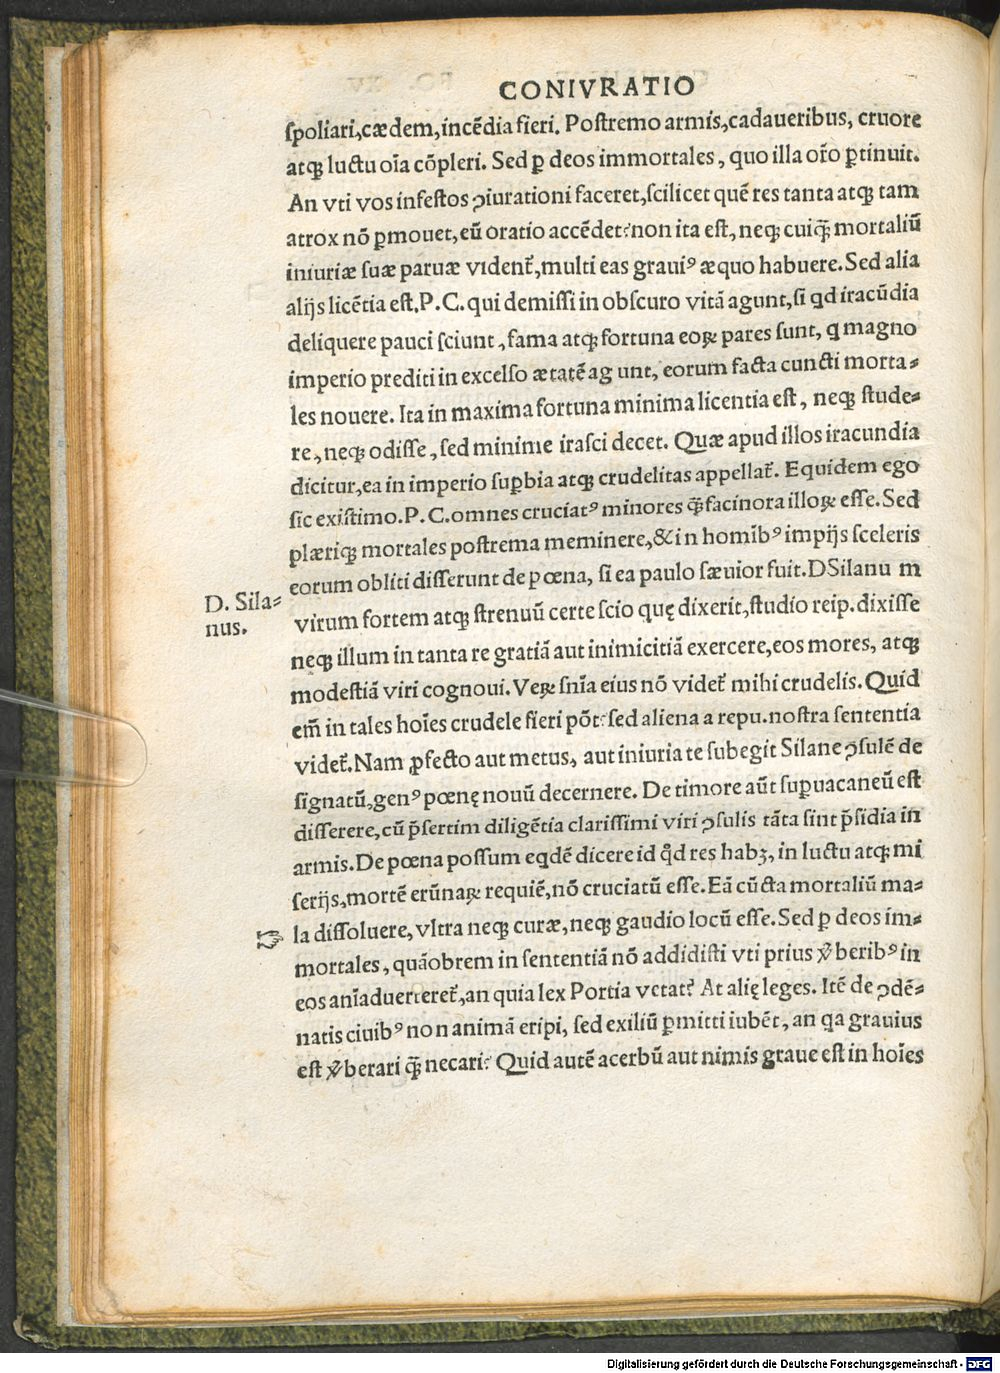 CONIVRATIO
ſpoliari, cædem, incēdia fieri. Poſtremo armis, cadaueribus, cruore
atqꝫ luctu oīa cōpleri. Sed ꝑ deos immortales, quo illa or̄o ꝑtinuit.
An vti vos infeſtos ꝯiurationi faceret, ſcilicet quē res tanta atqꝫ tam
atrox nō ꝑmouet, eū oratio accēdet? non ita eſt, neqꝫ cuiq̄ mortaliū
iniuriæ ſuæ paruæ vident̄, multi eas grauiꝰ æquo habuere. Sed alia
alijs licētia eſt. P. C. qui demiſſi in obſcuro vitā agunt, ſi qd iracūdia
deliquere pauci ſciunt, fama atqꝫ fortuna eoꝝ pares ſunt, q magno
imperio prediti in excelſo ætatē ag unt, eorum facta cuncti morta⸗
les nouere. Ita in maxima fortuna minima licentia eſt, neqꝫ ſtude⸗
re, neqꝫ odiſſe, ſed minime iraſci decet. Quæ apud illos iracundia
dicitur, ea in imperio ſuꝑbia atqꝫ crudelitas appellat̄. Equidem ego
ſic exiſtimo. P. C. omnes cruciatꝰ minores q̄ facinora illoꝝ eſſe. Sed
plæriqꝫ mortales poſtrema meminere, & in homibꝰ impijs ſceleris
eorum obliti diſſerunt de pœna, ſi ea paulo ſæuior fuit. D Silanu m
D. Sila⸗
nus.
virum fortem atqꝫ ſtrenuū certe ſcio quę dixerit, ſtudio reip. dixiſſe
neqꝫ illum in tanta re gratiā aut inimicitiā exercere, eos mores, atqꝫ
modeſtiā viri cognoui. Veꝝ ſnīa eius nō videt̄ mihi crudelis. Quid
em̄ in tales hoīes crudele fieri pōt? ſed aliena a repu. noſtra ſententia
videt̄. Nam ꝓfecto aut metus, aut iniuria te ſubegit Silane ꝯſulē de
ſignatū, genꝰ pœnę nouū decernere. De timore aūt ſuꝑuacaneū eſt
diſſerere, cū p̄ſertim diligētia clariſſimi viri ꝯſulis tāta ſint p̄ſidia in
armis. De pœna poſſum eqdē dicere id qd̄ res habꝫ, in luctu atqꝫ mi
ſerijs, mortē erūnaꝝ requiē, nō cruciatū eſſe. Eā cūcta mortaliū ma⸗
☞ la diſſoluere, vltra neqꝫ curæ, neqꝫ gaudio locū eſſe. Sed ꝑ deos im⸗
mortales, quāobrem in ſententiā nō addidiſti vti prius v̄beribꝰ in
eos anīaduerteret̄, an quia lex Portia vetat? At alię leges. Itē de ꝯdē⸗
natis ciuibꝰ non animā eripi, ſed exiliū ꝑmitti iubēt, an qa grauius
eſt v̄berari q̄ necari? Quid autē acerbū aut nimis graue eſt in hoīes
Digitalisierung gefördert durch die Deutsche Forschungsgemeinschaft - DFG